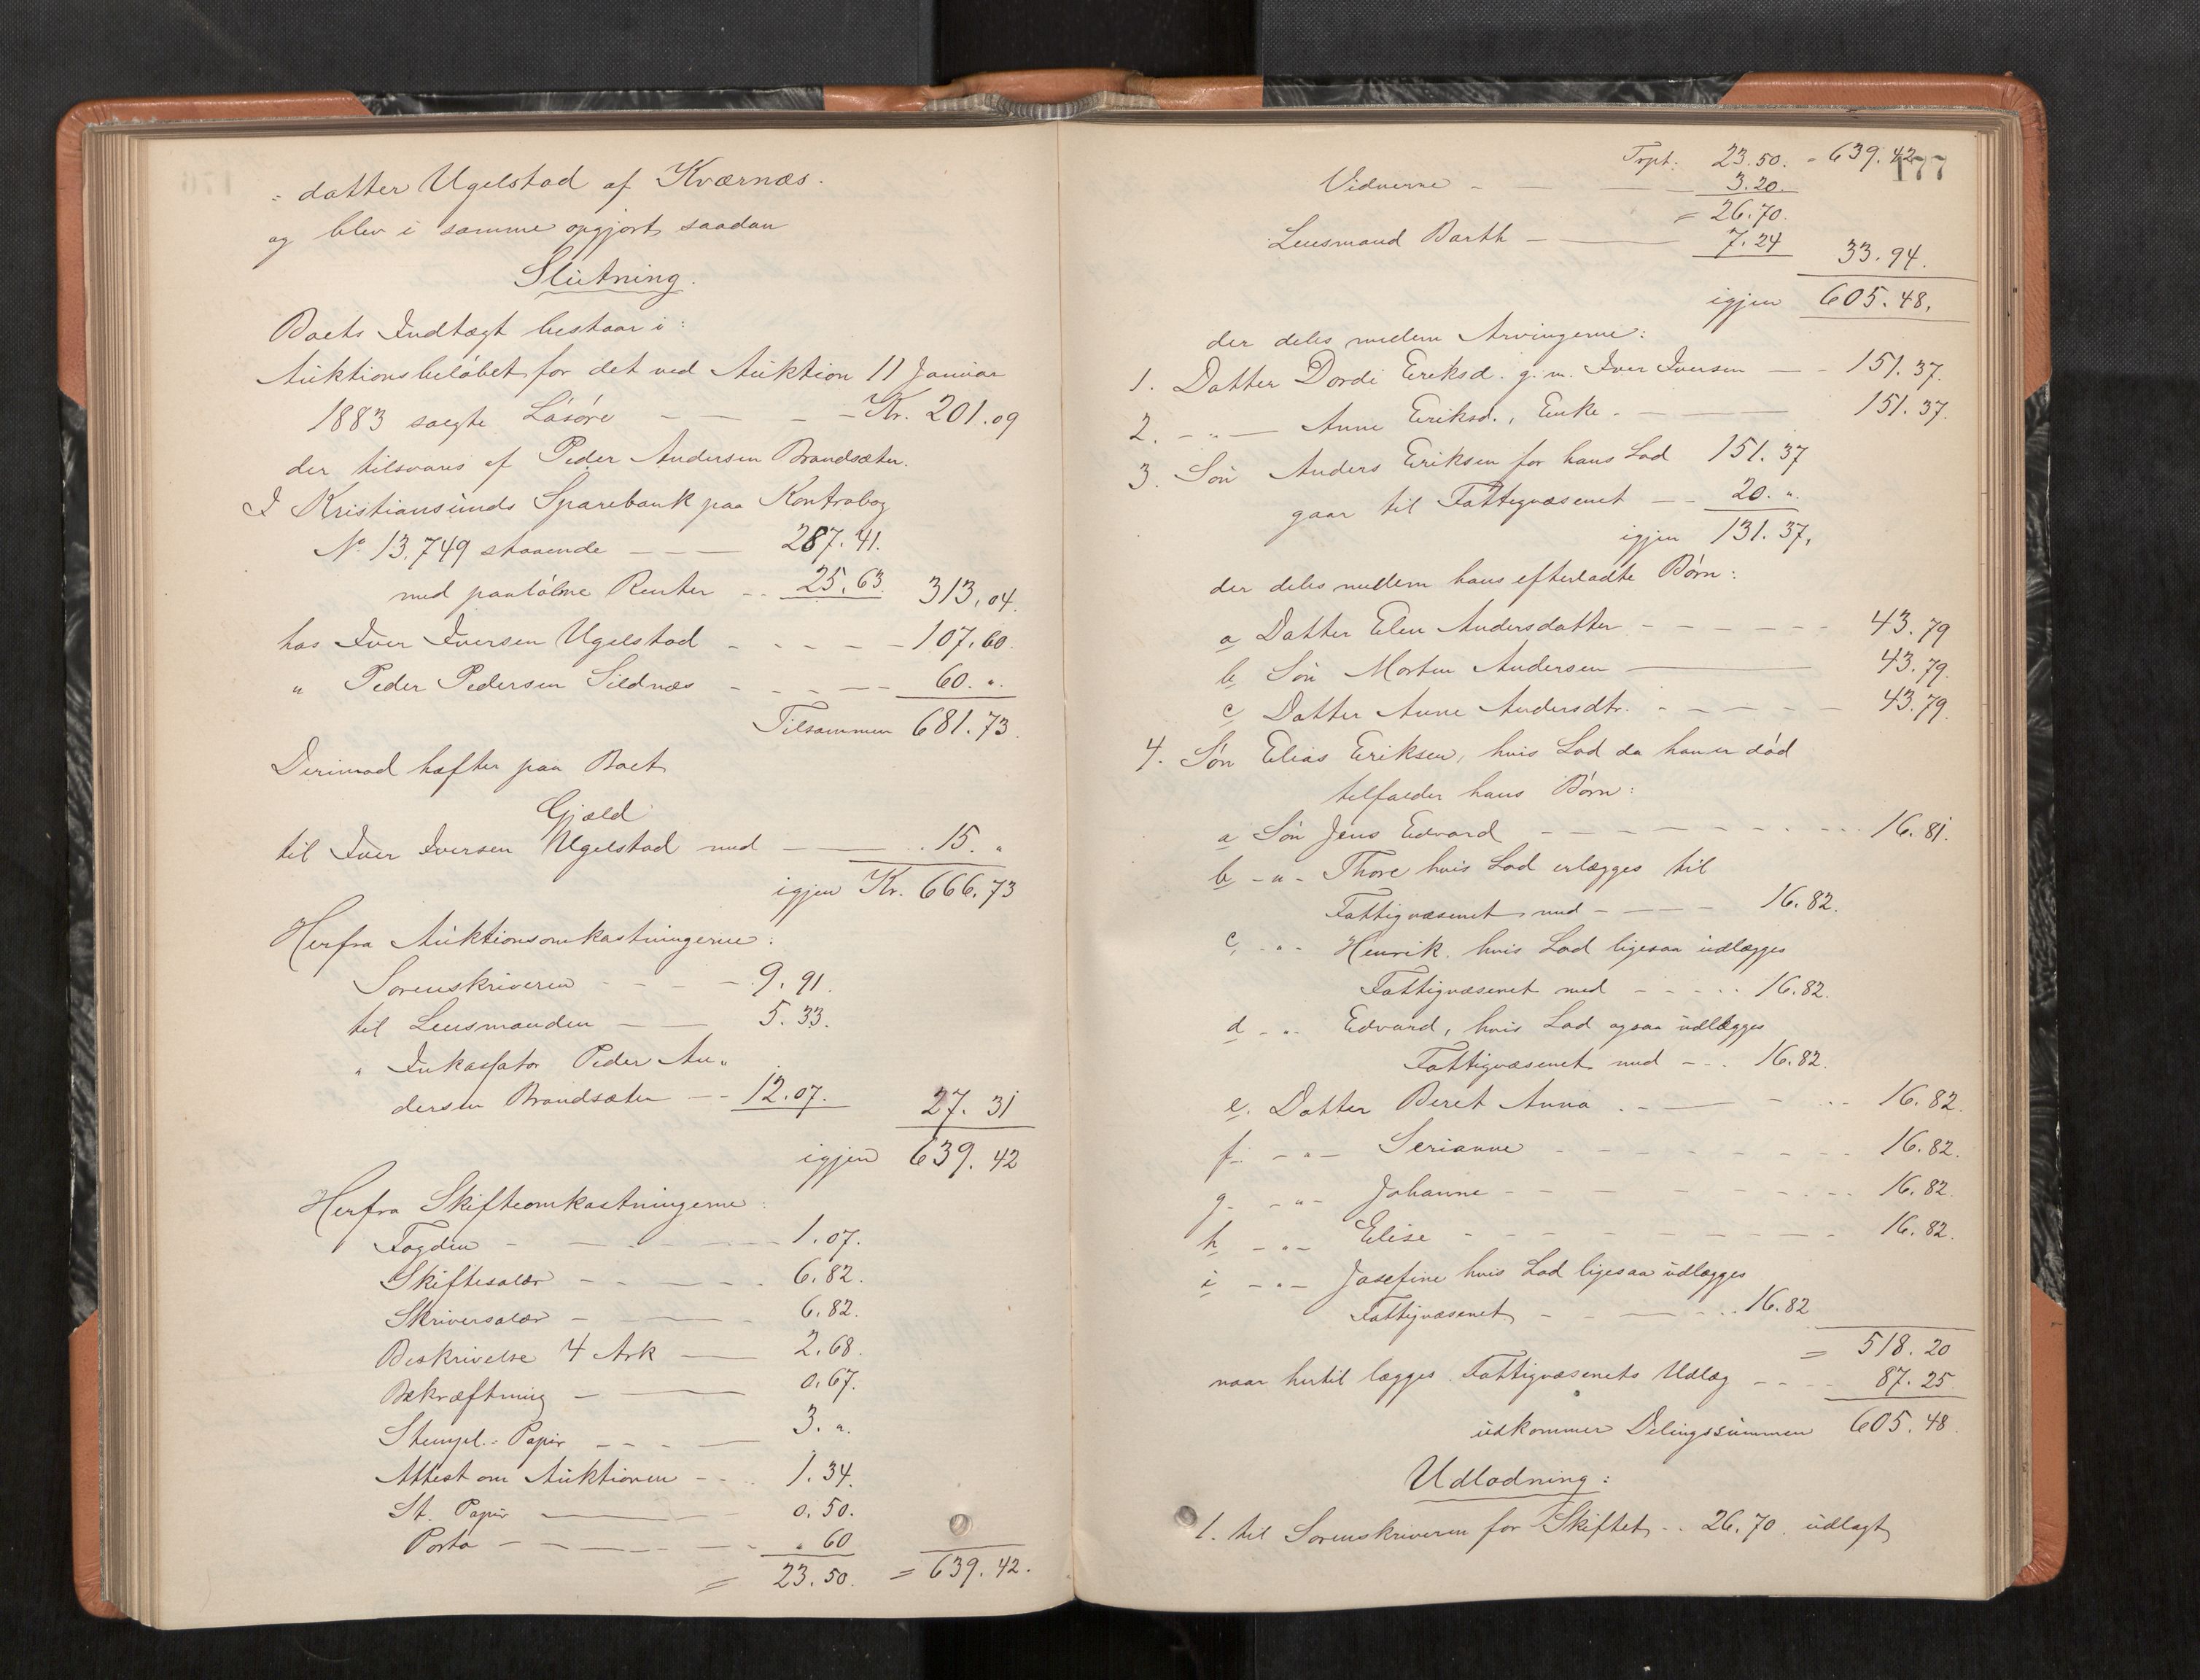 - datter Ugelstad af Kværnæs.
og blev i samme opgjort saadan
Slutning.
Boets Indtægt bestaar i:
Auktionsbeløbet for det ved Auktion 11 Januar
1883 solgte Løsøre - - - Kr. 201.09
der tilsvares af Peder Andersen Brandsæter.
I Kristiansunds Sparebank paa Kontrabog
No 13.749 staaende - - - 287.41.
med paaløbne Renter - - 25.63. 313,04.
hos Iver Iversen Ugelstad - - - - - 107.60.
" Peder Pedersen Sildnæs - - - - - 60. ".
Tilsammen 681.73.
Derimod hæfter paa Boet
Gjæld
til Iver Iversen Ugelstad med - - 15. "
igjen Kr. 666.73
Herfra Auktionsomkostningerne:
Sorenskriveren - - - - 9.91.
til Lensmanden - - 5.33.
" Inkassator Peder An-
dersen Brandsæter - - 12.07. 27.31
igjen 639.42
Herfra Skifteomkostningerne:
Fogden - - - - - 1.07.
Skiftesalær - - - - - 6.82.
Skriversalær - - - - 6.82.
Beskrivelse 4 Ark - 2.68.
Bekræftning - - 0.67.
Stempl.-Papir - - - - 3. ".
Attest om Auktionen - - - 1.34.
St. Papir - - 0.50.
Porto - - - - - - " 60
= 23.50. = 639.42.
177
Trpt. 23.50. - 639.42
Vidnerne - - - 3.20.
= 26.70.
Lensmand Barth - - 7.24 33.94.
igjen 605.48.
der deles mellem Arvingerne:
1. Datter Dordi Eriksd. g. m. Iver Iversen - - 151.37.
2. - " - Anne Eriksd., Enke - - 151.37.
3. Søn Anders Eriksen for hans Lod 151.37
gaar til Fattigvæsenet - - 20. ".
igjen 131.37.
der deles mellem hans efterladte Børn:
a Datter Elen Andersdatter - - - - - - 43.79
b Søn Morten Andersen - 43.79.
c Datter Anne Andersdtr. - - - - - 43.79.
4. Søn Elias Eriksen, hvis Lod da han er død
tilfalder hans Børn:
a Søn Jens Edvard - - - - - - - - 16.81.
b - " - Thore hvis Lod erlægges til
Fattigvæsenet med - - - - 16.82.
c. - " - Henrik, hvis Lod ligesaa udlægges
Fattigvæsenet med - - - - - 16.82.
d - " - Edvard, hvis Lod ogsaa udlægges
Fattigvæsenet med - - - 16.82.
e. Datter Beret Anna - - - - - 16.82.
f - " - Serianne - - - - - - - 16.82.
g - " - Johanne - - - - - - - 16.82.
h - " - Elise - - - - - - - - - 16.82.
i - " - Josefine hvis Lod ligesaa udlægges
Fattigvæsenet - - - - - 16.82
= 518.20
naar hertil lægges Fattigvæsenets Udlæg - - - - 87.25
udkommer Delingssummen 605.48.
Udlodning:
1. til Sorenskriveren for Skiftet - - 26.70. udlagt